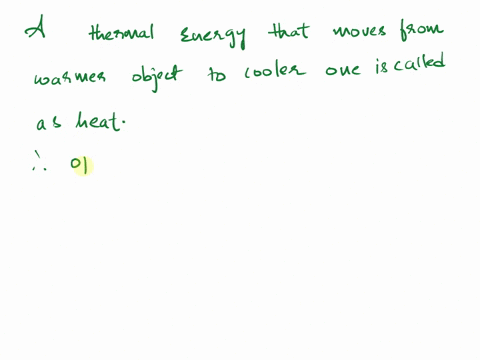 A thermal energy that moves from
warmer object to cooler one is called
as heat.
∴ op